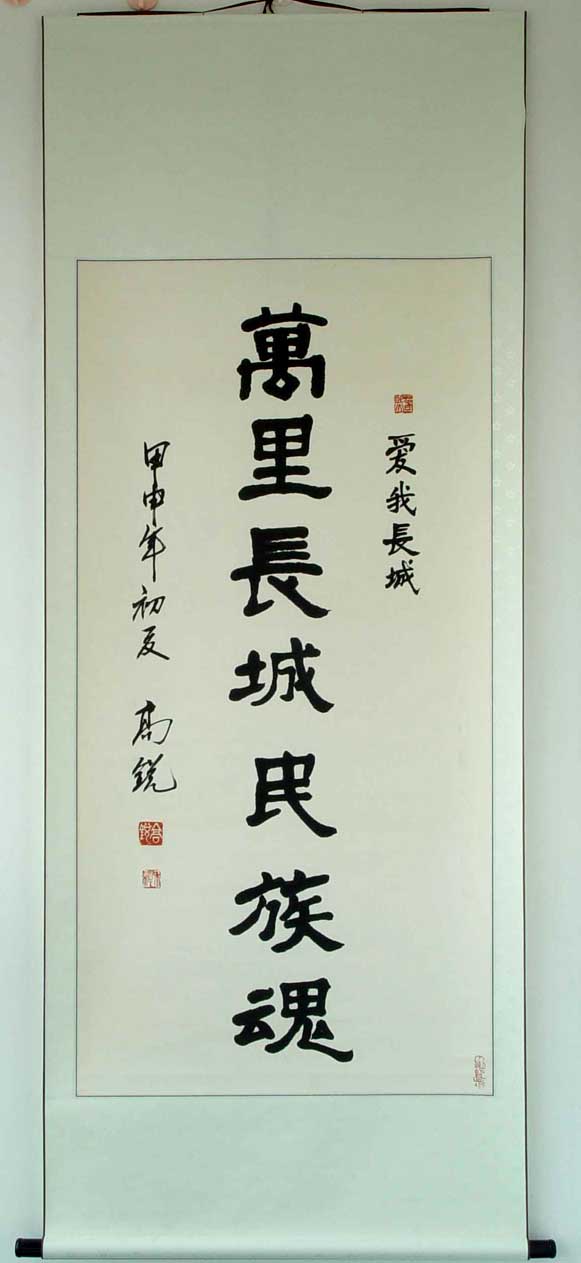 爱我長城
萬里長城民族魂
甲申年初夏 高锐